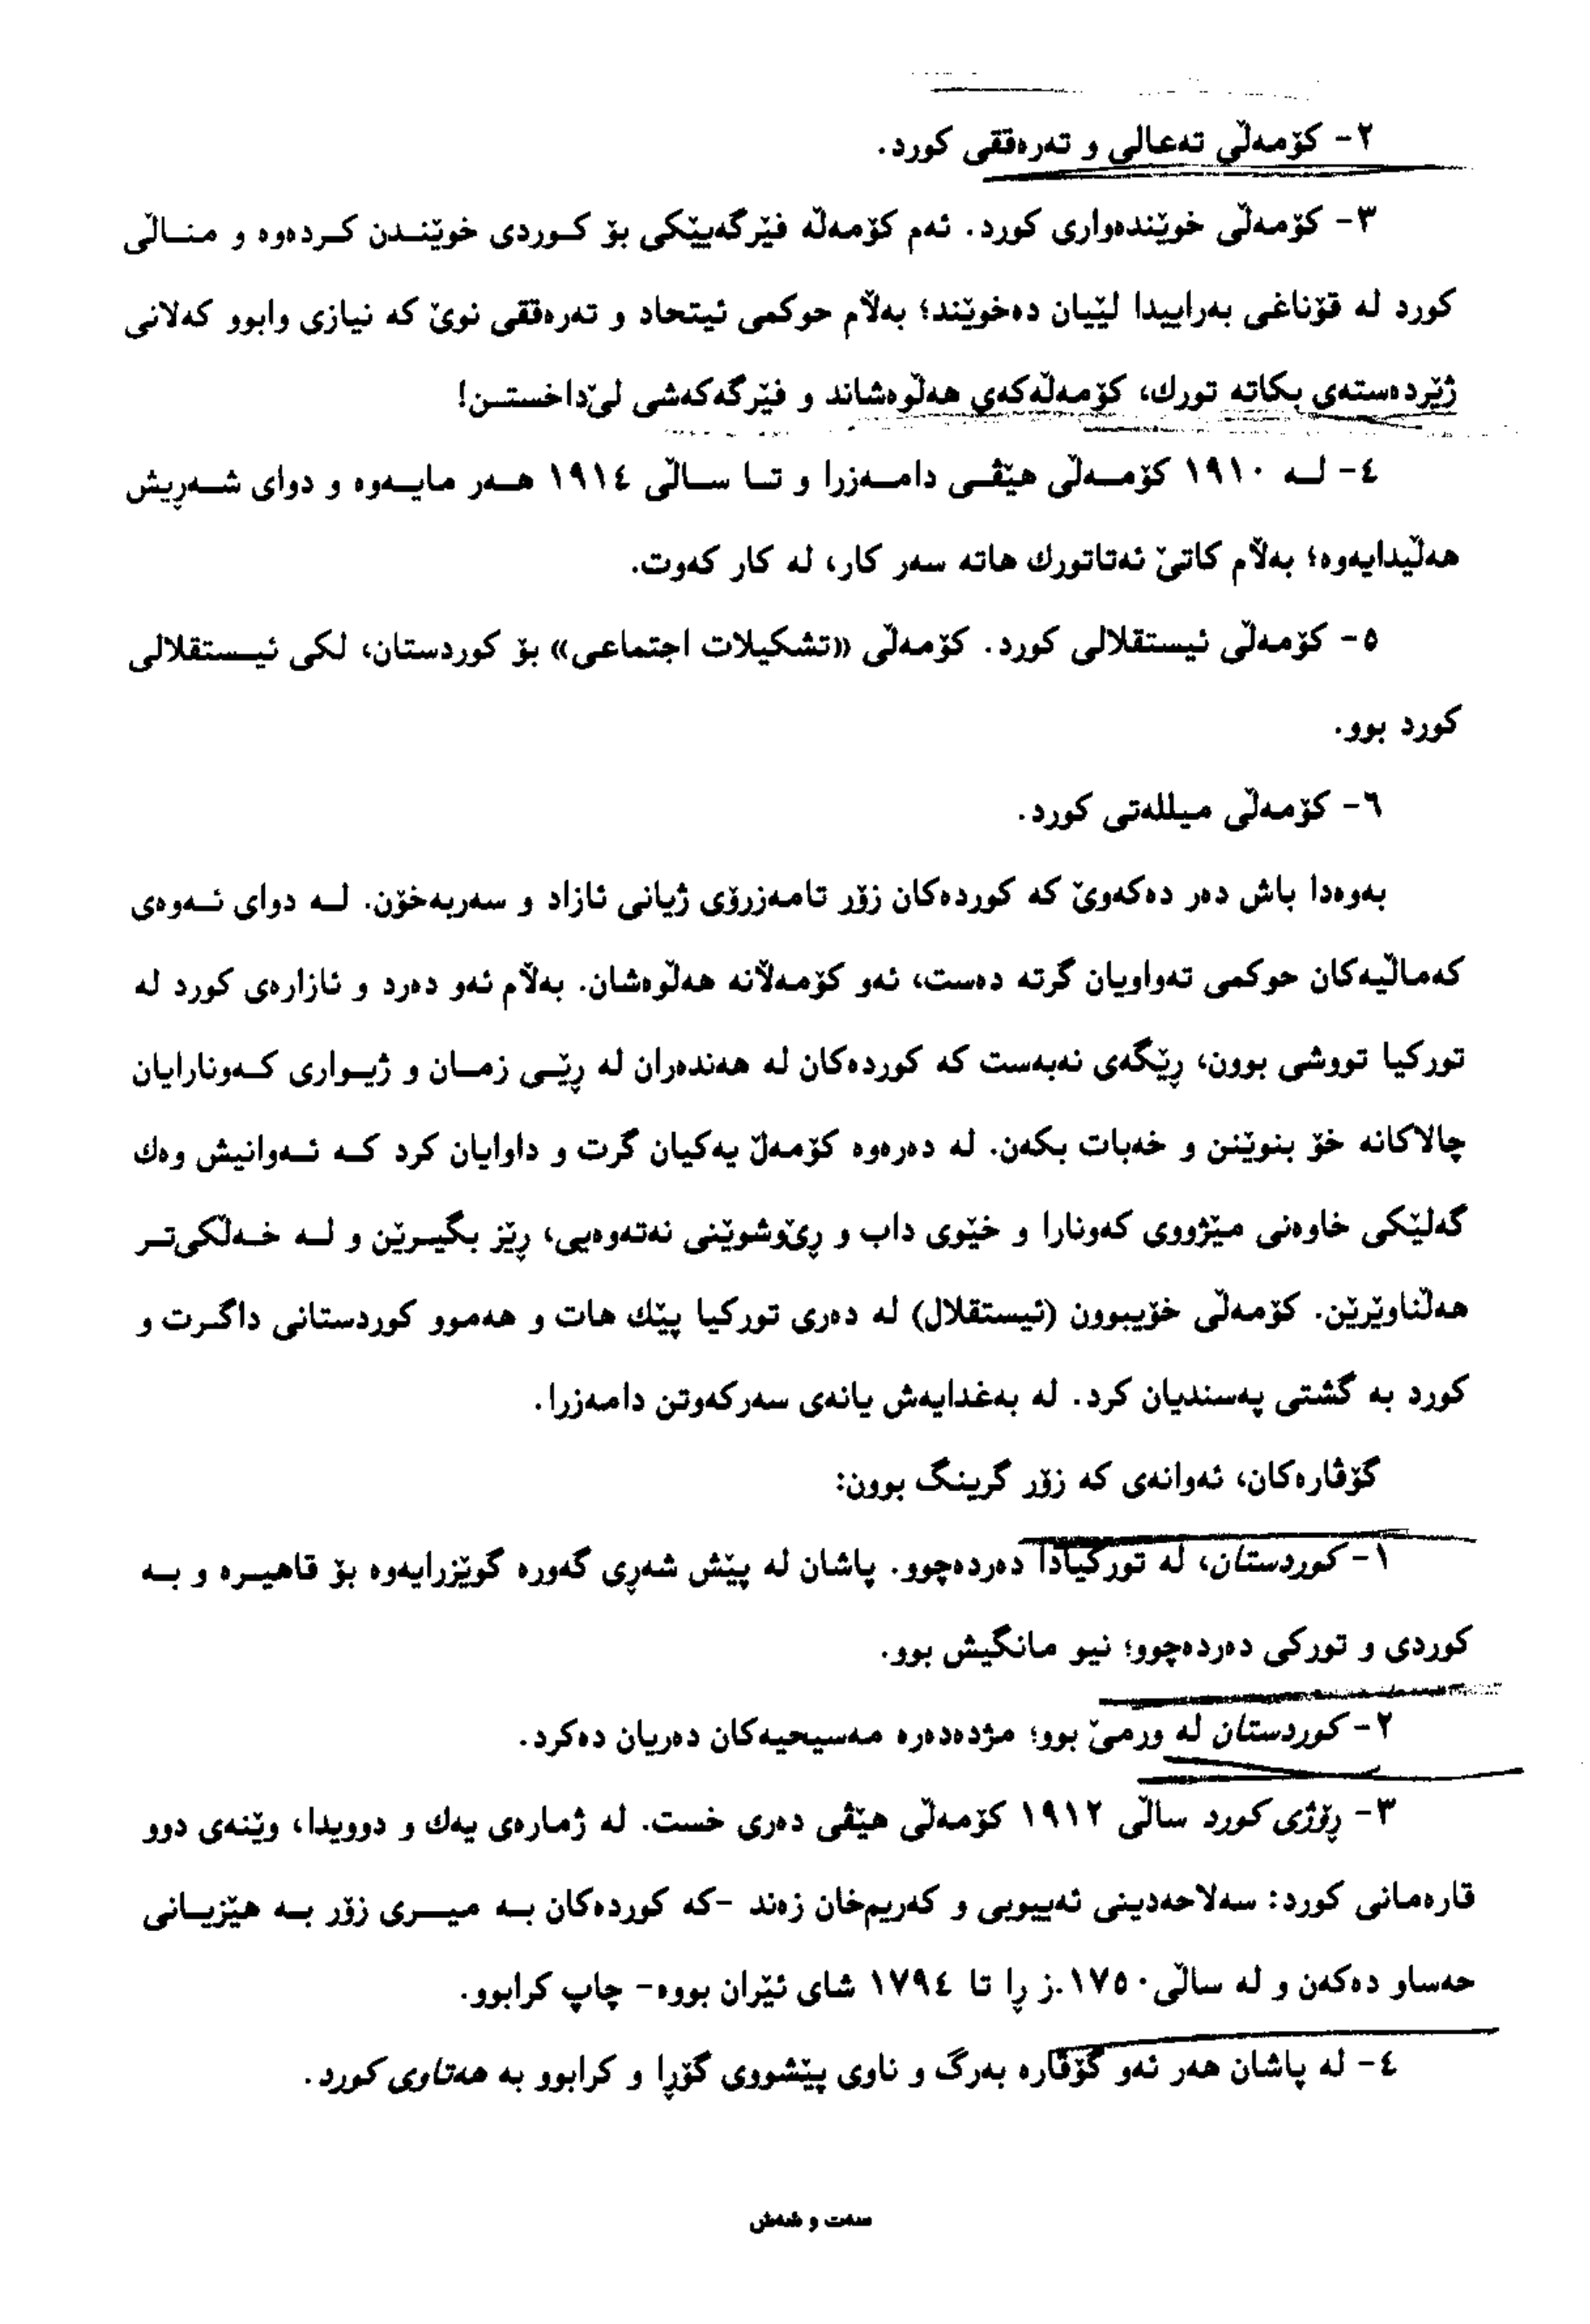 ٢- کۆمەڵی تەعالی و تەرەققی کورد.
٣- کۆمەڵی خوێندەواری کورد. ئەم کۆمەڵە فێرگەیێکی بۆ کوردی خوێندن کردەوە و مناڵی
کورد لە قۆناغی بەراییدا لێیان دەخوێند؛ بەڵام حوکمی ئیتحاد و تەرەققی نوێ کە نیازی وابوو کەلانی
ژێردەستەی بکاتە تورك، کۆمەڵەکەی هەڵوەشاند و فێرگەکەشی لێ‌داخستن!
٤- لە ١٩١٠ کۆمەڵی هێڤی دامەزرا و تا ساڵی ١٩١٤ هەر مایەوە و دوای شەڕیش
هەڵیدایەوە؛ بەڵام کاتێ ئەتاتورك هاتە سەر کار، لە کار کەوت.
٥- کۆمەڵی ئیستقلالی کورد. کۆمەڵی «تشکیلات اجتماعی» بۆ کوردستان، لکی ئیستقلالی
کورد بوو.
٦- کۆمەڵی میللەتی کورد.
بەوەدا باش دەر دەکەوێ کە کوردەکان زۆر تامەزرۆی ژیانی ئازاد و سەربەخۆن. لە دوای ئەوەی
کەماڵیەکان حوکمی تەواویان گرتە دەست، ئەو کۆمەڵانە هەڵوەشان. بەڵام ئەو دەرد و ئازارەی کورد لە
تورکیا تووشی بوون، ڕێگەی نەبەست کە کوردەکان لە هەندەران لە ڕێی زمان و ژیواری کەونارایان
چالاکانە خۆ بنوێنن و خەبات بکەن. لە دەرەوە کۆمەڵ یەکیان گرت و داوایان کرد کە ئەوانیش وەك
گەلێکی خاوەنی مێژووی کەونارا و خێوی داب و ڕێ‌وشوێنی نەتەوەیی، ڕێز بگیرێن و لە خەڵکی‌تر
هەڵناوێرێن. کۆمەڵی خۆیبوون (ئیستقلال) لە دەری تورکیا پێك هات و هەموو کوردستانی داگرت و
کورد بە گشتی پەسندیان کرد. لە بەغدایەش یانەی سەرکەوتن دامەزرا.
گۆڤارەکان، ئەوانەی کە زۆر گرینگ بوون:
١- کوردستان، لە تورکیادا دەردەچوو. پاشان لە پێش شەڕی گەورە گوێزرایەوە بۆ قاهیرە و بە
کوردی و تورکی دەردەچوو؛ نیو مانگیش بوو.
٢- کوردستان لە ورمێ بوو؛ مژدەدەرە مەسیحیەکان دەریان دەکرد.
٣- ڕۆژی کورد ساڵی ١٩١٢ کۆمەڵی هێڤی دەری خست. لە ژمارەی یەك و دوویدا، وێنەی دوو
قارەمانی کورد: سەلاحەدینی ئەییوبی و کەریم‌خان زەند -کە کوردەکان بە میری زۆر بە هێزیانی
حەساو دەکەن و لە ساڵی ١٧٥٠.ز ڕا تا ١٧٩٤ شای ئێران بووە- چاپ کرابوو.
٤- لە پاشان هەر ئەو گۆڤارە بەرگ و ناوی پێشووی گۆڕا و کرابوو بە هەتاوی کورد.
سەت و شەش